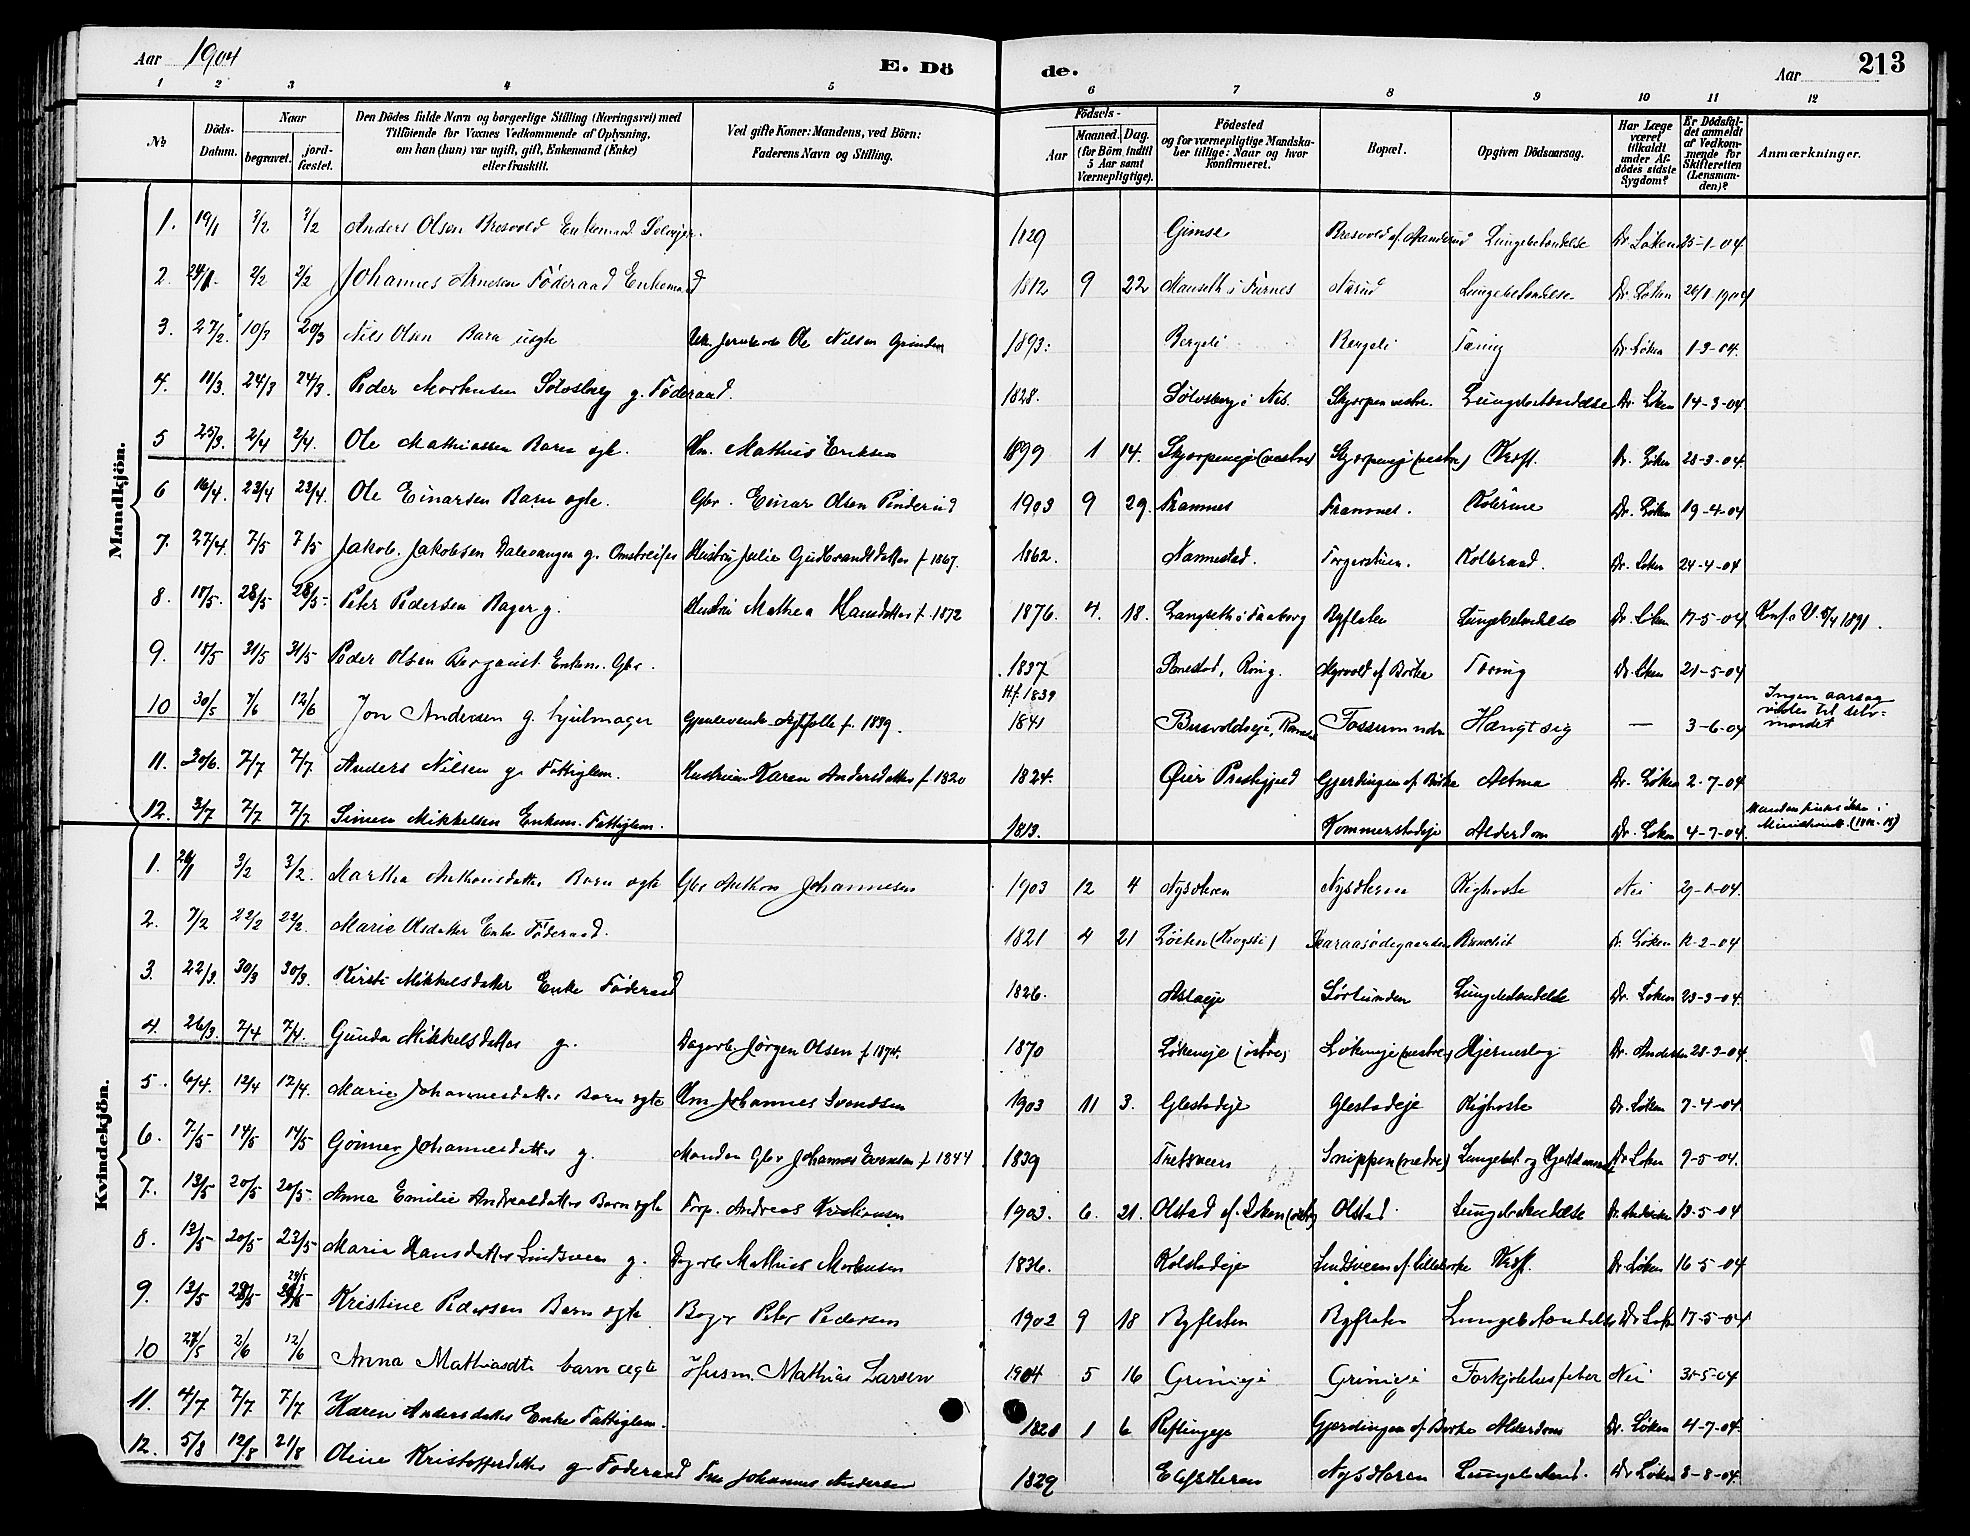 Aar 1904 E. Dö de. Aar 213
1 2 3 4 5 6 7 8 9 10 11 12
No Döds-Datum. Naar begravet. jordfæstet. Den Dödes fulde Navn og borgerlige Stilling (Næringsvei) med Tilföiende for Voxnes Vedkommende af Oplysning, om han (hun) var ugift, gift, Enkemand (Enke) eller fraskilt. Ved gifte Koner: Mandens, ved Börn: Faderens Navn og Stilling. Födsels- Aar Maaned. Dag. (for Börn indtil 5 Aar samt Værnepligtige). Födested og for værnepligtige Mandskaber tillige: Naar og hvor konfirmeret. Bopæl. Opgiven Dödsaarsag. Har Læge været tilkaldt under Afdödes sidste Sygdom? Er Dödsfaldet anmeldt af Vedkommende for Skifteretten (Lensmanden)? Anmærkninger.
Mandkjön.
1. 19/1 3/2 3/2 Anders Olsen Bresvold Enkemand Selveier. 1829 Gimse Bresvold af Lungebetændelse Dr Löken 25-1-04
2. 24/1 2/2 2/2 Johannes Arnesen Föderaad Enkemand 1812 9 22 Mauseth i Furnes Lungebetændelse Dr. Löken 26/1-1904
3. 27/2. 10/3 20/3 Nils Olsen Barn Ole Nilsen 1893. Bergeli Bergeli Tæring Dr. Löken 1-3-04.
4. 11/3. 24/3 24/3. Peder Morthensen Sölvsberg g. Föderaad. 1828. Sölvsberg i Nes. Skjorpen vestre. Lungebetændelse Dr. Löken 14-3-04
5 25/3. 2/4 2/4. Ole Mathiassen Barn egte. Hm. Mathias Eriksen 1899 1 14. Skjorpeneje (vestre) Skjorpeneje (vestre) Kræft. Dr. Löken 28-3-04.
6 16/4. 23/4 23/4. Ole Einarsen Barn egte. Gbr. Einar Olsen Pinderud 1903 9 29. Framnes Framnes. Kolerine Dr. Löken 19-4-04
7. 27/4. 7/5 7/5 Jakob Jakobsen Dalevangen g. Omstreifer Hustru Julie Gudbrandsdatter f. 1867. 1862. Nannestad. Torgerstuen. Kolbrand. Dr. Löken 24-4-04
8. 15/5. 28/5 28/5. Peter Pedersen Bager g. Hustru Mathea Hansdatter f. 1872 1876. 4. 18. Langseth i Faaberg Byflaten Lungebetændelse Dr. Löken 17-5-04 Konf. i V. 5/4 1891.
9. 18/5 31/5 31/5 Peder Olsen Bergquist Enkem. Gbr. 1837 Ring. Myrvold af Börke Tæring Dr. Löken 21-5-04
10 30/5 7/6 12/6 Jon Andersen g. hjulmager Gjenlevende Ægtefelle f. 1839. 1841 Fossum ndre Hængt sig — 3-6-04 Ingen aarsag vides til selvmordet
11. 30/6. 7/7 7/7. Anders Nilsen g. Fattiglem. Hustruen Karen Andersdatter f. 1820 1824. Öier Prestgjeld Gjerdingen af Börke Astma Dr. Löken 2-7-04
12. 3/7 7/7 7/7 Simen Mikkelsen Enkem. Fattiglem. 1813. Kommerstadeje Alderdom Dr. Löken 4-7-04. Manden findes ikke i Ministerialb.
Kvindekjön.
1. 26/1 3/2 3/2. Martha Anthonsdatter Barn egte Gbr Anthon Johannesen 1903 12 4 Kighoste Nei 29-1-04.
2. 7/2 22/2 22/2. Marie Olsdatter Enke Föderaad. 1821 4 21 Löiten (Krogsti) Dr. Löken 12-2-04
3. 22/3. 30/3 30/3. Kirsti Mikkelsdatter Enke Föderaad 1826. Sörlunden Lungebetændelse Dr. Löken 23-3-04.
4. 26/3 7/4 7/4. Gunda Mikkelsdatter g. Dagarb. Jörgen Olsen f. 1874. 1870 Lökeneje (östre) Lökeneje (vestre) Hjerneslag Dr. Andersen 28-3-04.
5. 6/4. 12/4 12/4. Marie Johannesdatter Barn egte Hm Johannes Svendsen 1903 11 3. Glestadeje Glestadeje Kighoste Dr. Löken 7-4-04.
6. 7/5 14/5 14/5 Gönner Johannesdatter g. Manden Gbr Johannes Evensen f. 1844 1839 Tretsveen Snippen (nedre) Lungebet. og Dr Löken 9-5-04.
7. 13/5 20/5 20/5. Anna Emilie Andreasdatter Barn egte Forp. Andreas Kristiansen 1903. 6. 21. Olstad af Löken (östre) Olstad Lungebetændelse Dr. Andersen 13-5-04
8. 13/5 20/5 23/5 Maria Hansdatter Lindsveen g. Dagarb. Mathias Morthensen 1836. Kolstadeje Lindsveen af Kræft. Dr. Löken 16-5-04
9. 13/5 28/5 29/5 Kristine Pedersen Barn egte Bager Peter Pedersen 1902 9 18 Byflaten Byflaten Lungebetændelse Dr Löken 17-5-04
10 2/6 12/6 Anna Mathiasdt. barn ægte Husm. Mathias Larsen 1904 5 16 Grinieje Grinieje Forkjölelsesfeber Nei 31-5-04
11. 4/7 7/7 7/7 Karen Andersdatter Enke Fattiglem. 1820 1 6 Reflingeje Gjerdingen af Börke Alderdom Dr. Löken 4-7-04.
12. 5/8 12/8 21/8 Oline Kristoffersdatter g. Föderaad Johannes Andersen 1829 Lungebetænd. Dr Löken 8-8-04.